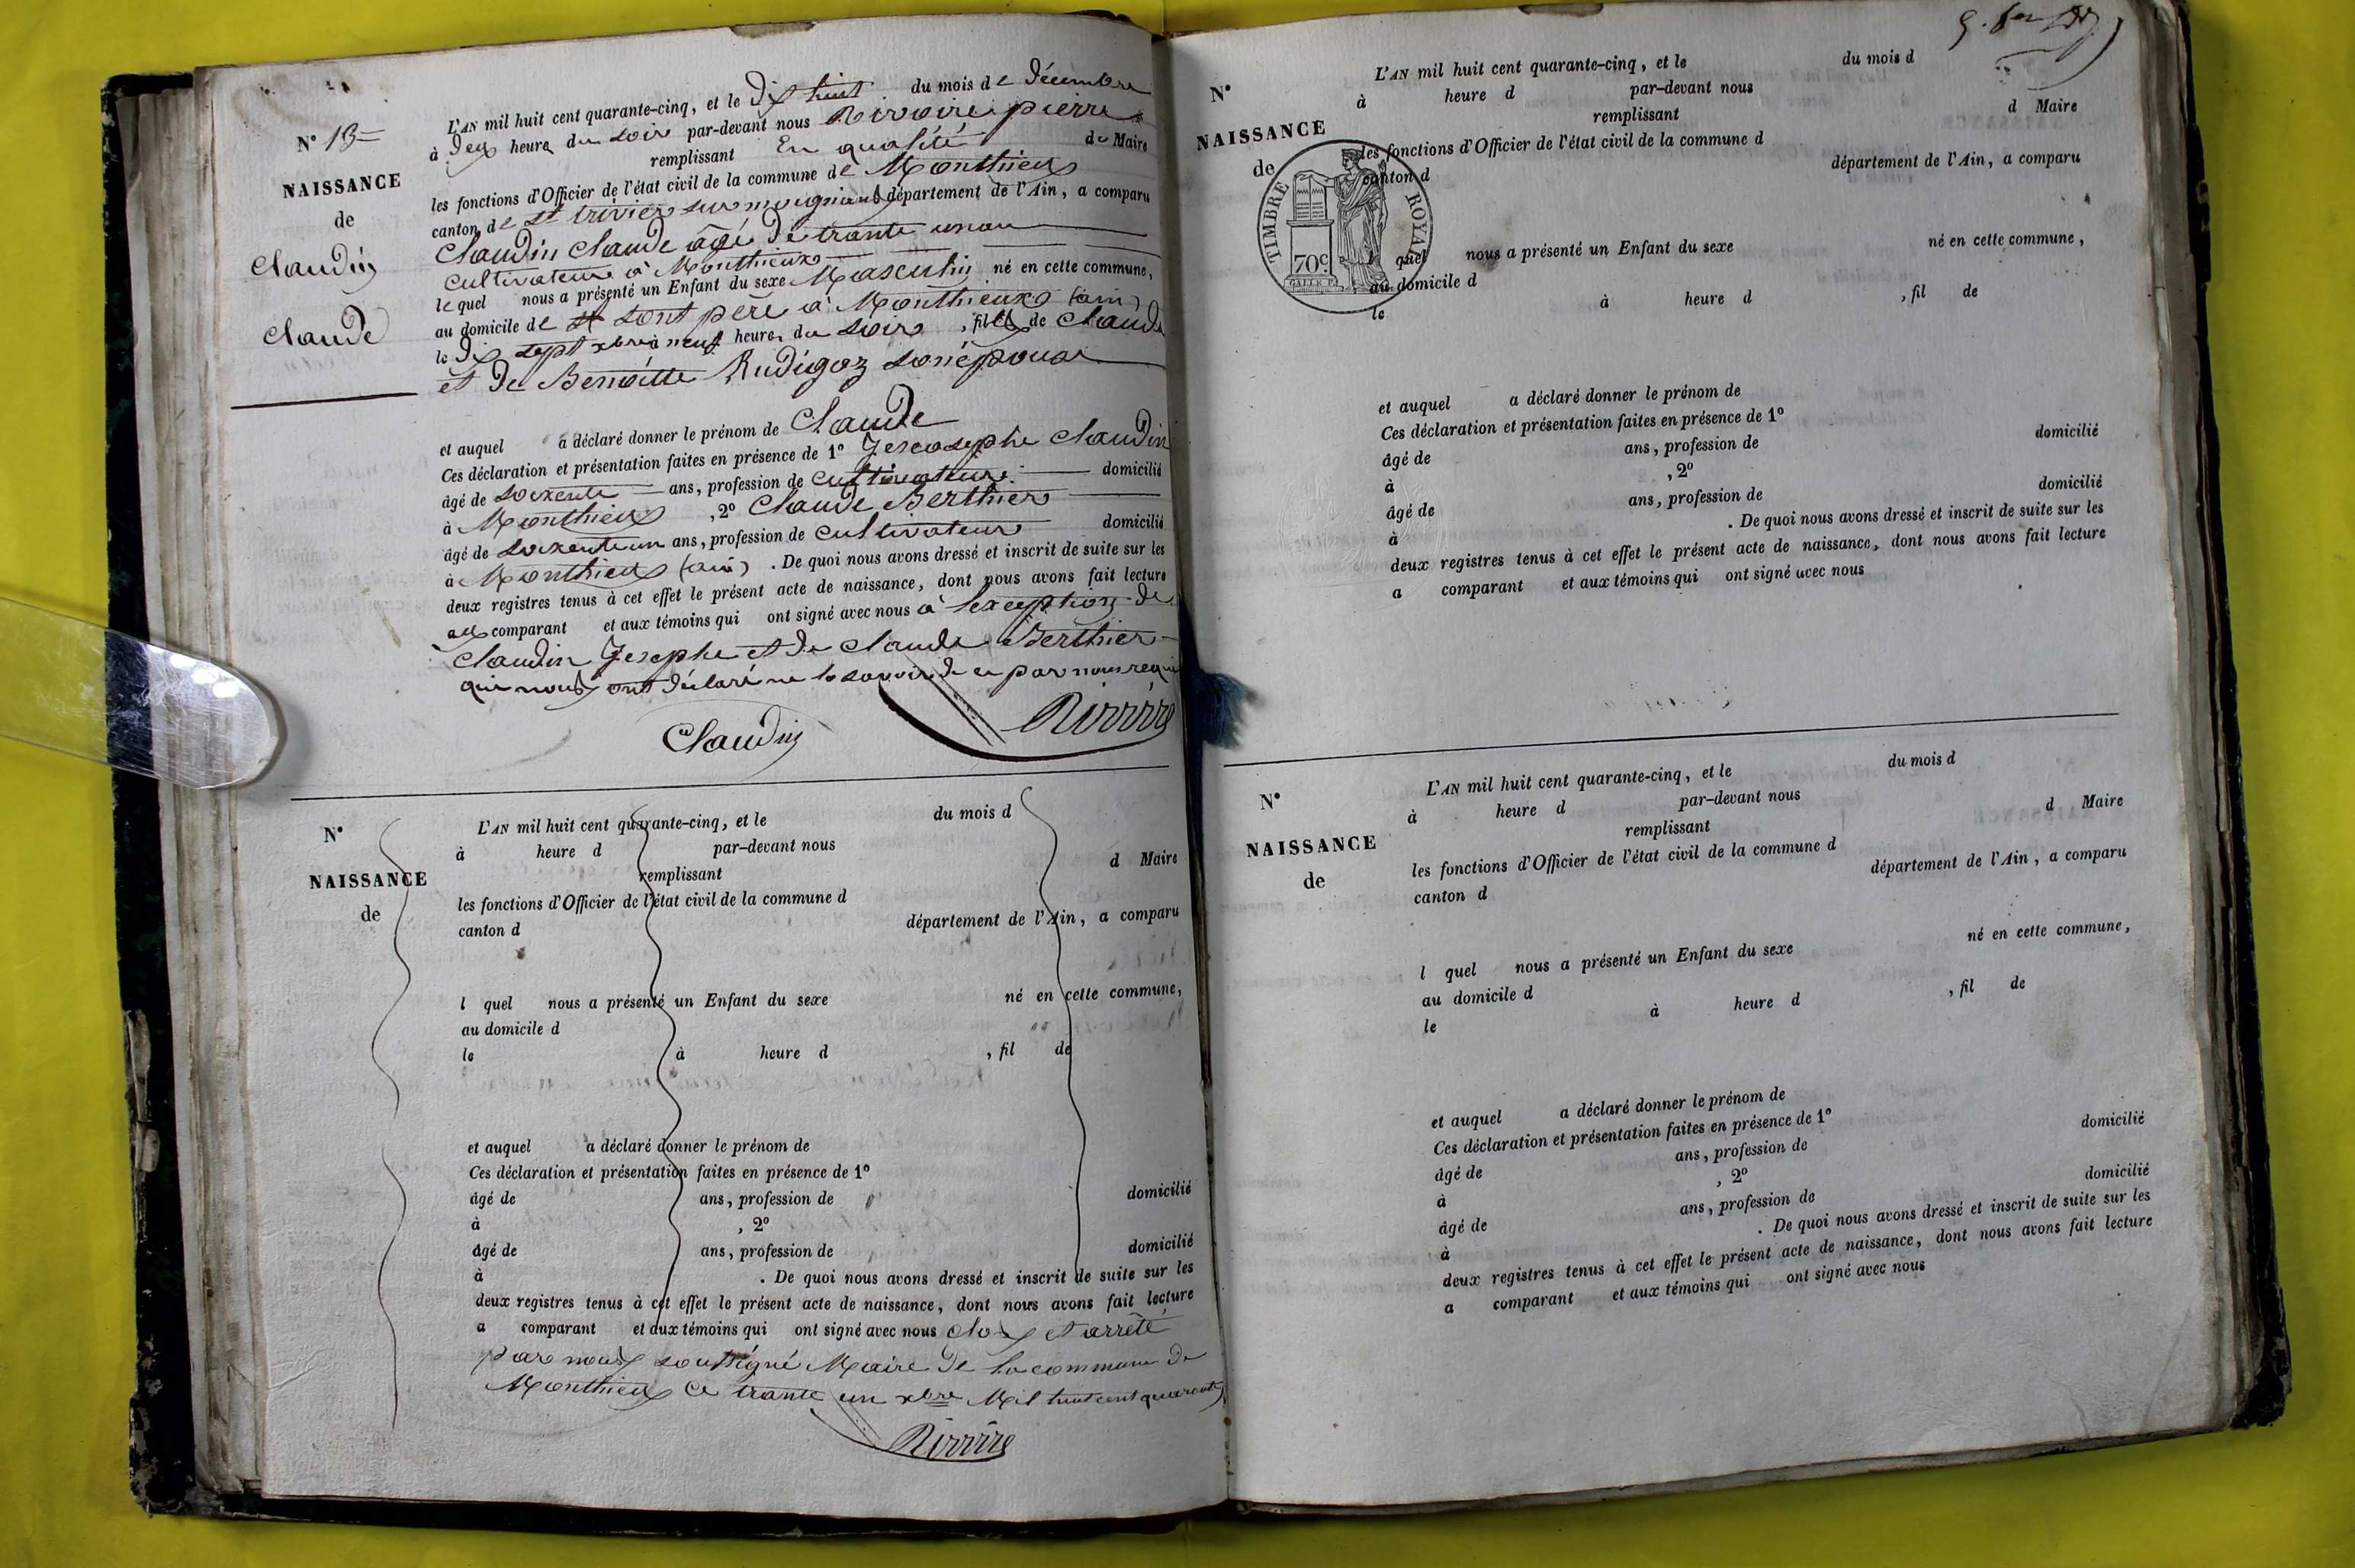 N° 13=
NAISSANCE
de
Claudin
Claude
L'AN mil huit cent quarante-cinq, et le Dix huit du mois de Décembre
à Deux heures du soir par-devant nous Rivoire pierre
remplissant En qualité de Maire
les fonctions d'Officier de l'état civil de la commune de Monthieux
canton de St trivier sur moignand département de l'Ain, a comparu
Claudin Claude âgé de trante un an
Cultivateur à Monthieux
lequel nous a présenté un Enfant du sexe Masculin né en cette commune,
au domicile de st sont père à Monthieux (ain)
le Dix sept xbre à neuf heures du soir, fils de Claude
et de Benoitte Rudigoz son épouse
et auquel a déclaré donner le prénom de Claude
Ces déclaration et présentation faites en présence de 1° Claudin
âgé de soixente ans, profession de cultivateur domicilié
à Monthieux, 2° Claude Berthier
âgé de soixente un ans, profession de cultivateur domicilié
à Monthieux (ain). De quoi nous avons dressé et inscrit de suite sur les
deux registres tenus à cet effet le présent acte de naissance, dont nous avons fait lecture
aux comparant et aux témoins qui ont signé avec nous à lexception de
Claudin Josephe et de Claude Berthier
qui nous ont déclaré ne le savoir de ce par nous requi
Claudin
Rivoire
N°
NAISSANCE
de
L'AN mil huit cent quarante-cinq, et le du mois d
à heure d par-devant nous
remplissant d Maire
les fonctions d'Officier de l'état civil de la commune d
canton d département de l'Ain, a comparu
l quel nous a présenté un Enfant du sexe né en cette commune,
au domicile d
le à heure d , fil de
et auquel a déclaré donner le prénom de
Ces déclaration et présentation faites en présence de 1°
âgé de ans, profession de domicilié
à , 2°
âgé de ans, profession de domicilié
à . De quoi nous avons dressé et inscrit de suite sur les
deux registres tenus à cet effet le présent acte de naissance, dont nous avons fait lecture
a comparant et aux témoins qui ont signé avec nous clos et arrêté
par nous soussigné Maire de la commune de
Monthieux ce trante un xbre Mil huit cent quarante
Rivoire
N°
NAISSANCE
de
TIMBRE ROYAL
70c
L'AN mil huit cent quarante-cinq, et le du mois d
à heure d par-devant nous
remplissant d Maire
les fonctions d'Officier de l'état civil de la commune d
canton d département de l'Ain, a comparu
l quel nous a présenté un Enfant du sexe né en cette commune,
au domicile d
le à heure d , fil de
et auquel a déclaré donner le prénom de
Ces déclaration et présentation faites en présence de 1°
âgé de ans, profession de domicilié
à , 2°
âgé de ans, profession de domicilié
à . De quoi nous avons dressé et inscrit de suite sur les
deux registres tenus à cet effet le présent acte de naissance, dont nous avons fait lecture
a comparant et aux témoins qui ont signé avec nous
N°
NAISSANCE
de
L'AN mil huit cent quarante-cinq, et le du mois d
à heure d par-devant nous
remplissant d Maire
les fonctions d'Officier de l'état civil de la commune d
canton d département de l'Ain, a comparu
l quel nous a présenté un Enfant du sexe né en cette commune,
au domicile d
le à heure d , fil de
et auquel a déclaré donner le prénom de
Ces déclaration et présentation faites en présence de 1°
âgé de ans, profession de domicilié
à , 2°
âgé de ans, profession de domicilié
à . De quoi nous avons dressé et inscrit de suite sur les
deux registres tenus à cet effet le présent acte de naissance, dont nous avons fait lecture
a comparant et aux témoins qui ont signé avec nous